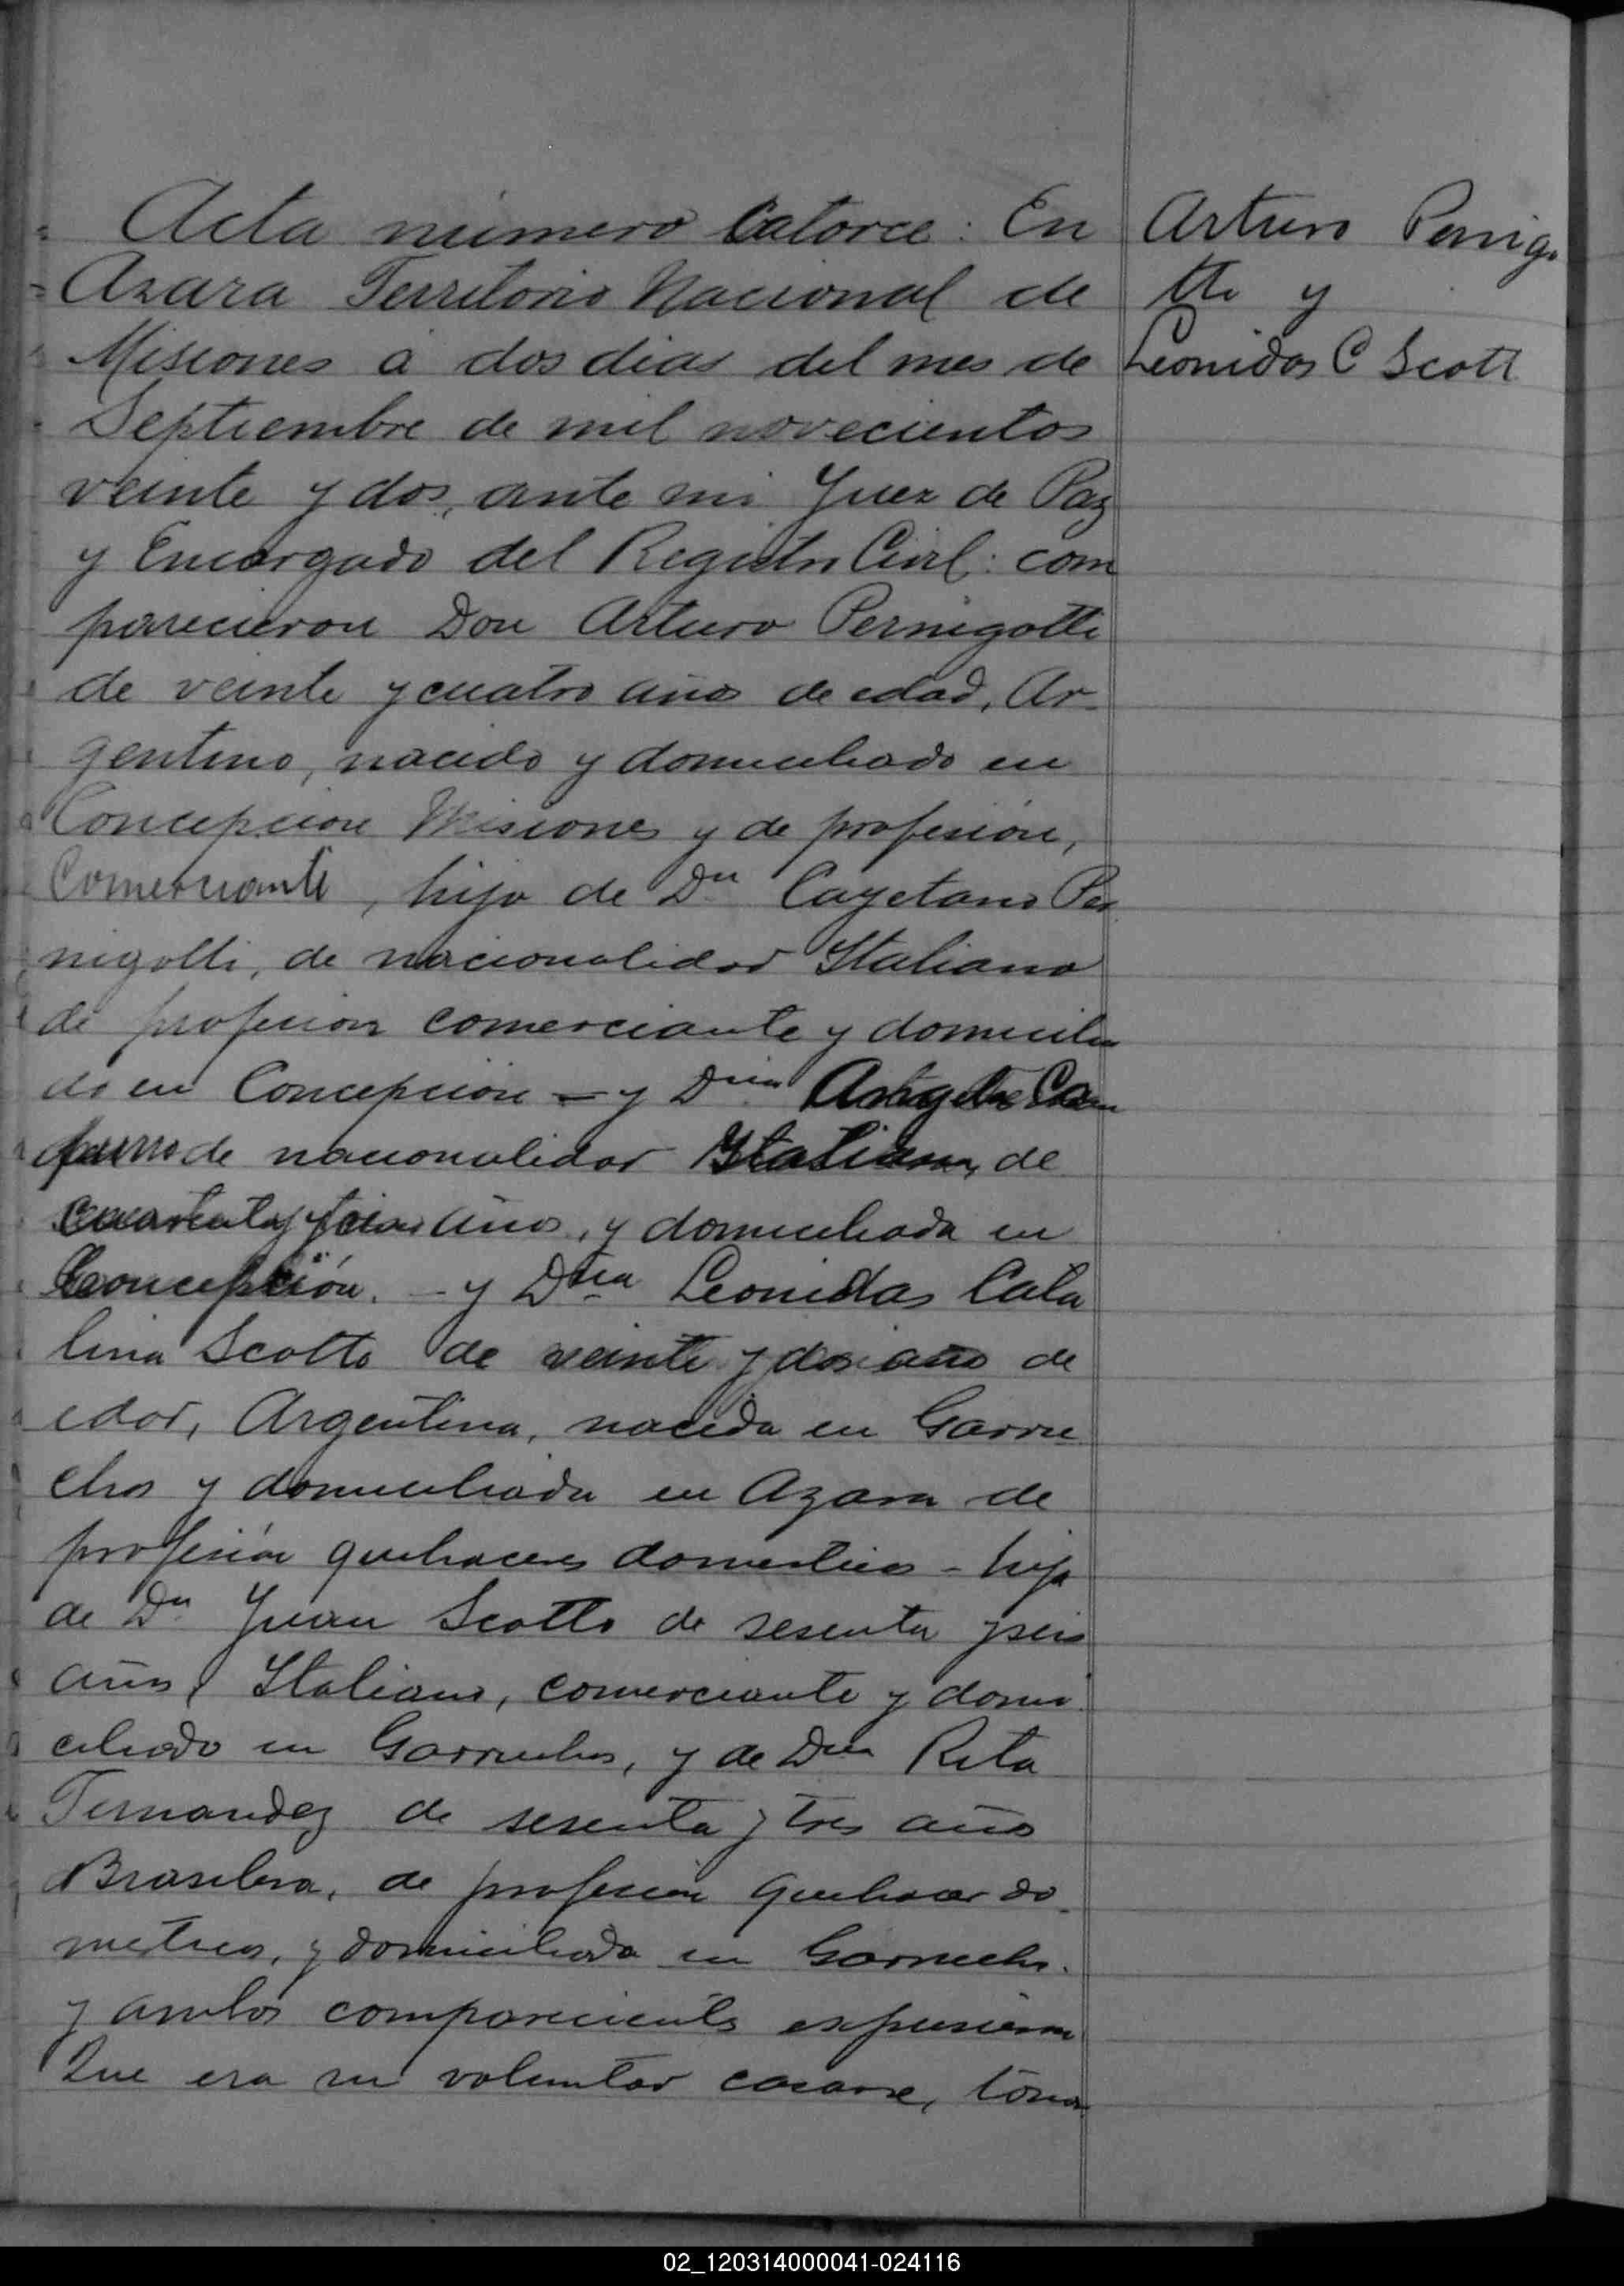 Acta número Catorce: En
Azara Territorio Nacional de
Misiones á dos dias del mes de
Septiembre de mil novecientos
veinte y dos, ante mi Juez de Paz
y Encargado del Registro Civil: com
parecieron Don Arturo Pernigotti
de veinte y cuatro años de edad, Ar-
gentino, nacido y domiciliado en
Concepcion Misiones y de profesión,
Comerciante, hijo de Dn Cayetano Per
nigotti, de nacionalidad Italiano
de profesion comerciante y domicilia
do en Concepcion - y Dña
de nacionalidad Italiana, de
cuarenta y años, y domiciliada en
Concepción. - y Dña Leonidas Cata
lina Scotto de veinte y dos años de
edad, Argentina, nacida en Garru
chos y domiciliada en Azara de
profesión quehaceres domesticos - hija
de Dn Juan Scotto de sesenta y seis
años, Italiano, comerciante y domi
ciliado en Garruchos, y de Dña Rita
Fernandez de sesenta y tres años
Brasilera, de profesion quehacer do-
mesticos, y domiciliada en Garruchos.
y ambos comparecientes expusieron
Que era su voluntad casarse, toma
Arturo Pernigo
tti y
Leonidas C Scott
02_120314000041-024116